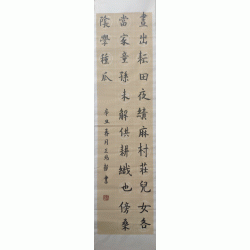 晝出耘田夜績麻村莊兒女各
當家童孫未解供耕織也傍桑
陰學種瓜
辛丑春月王書